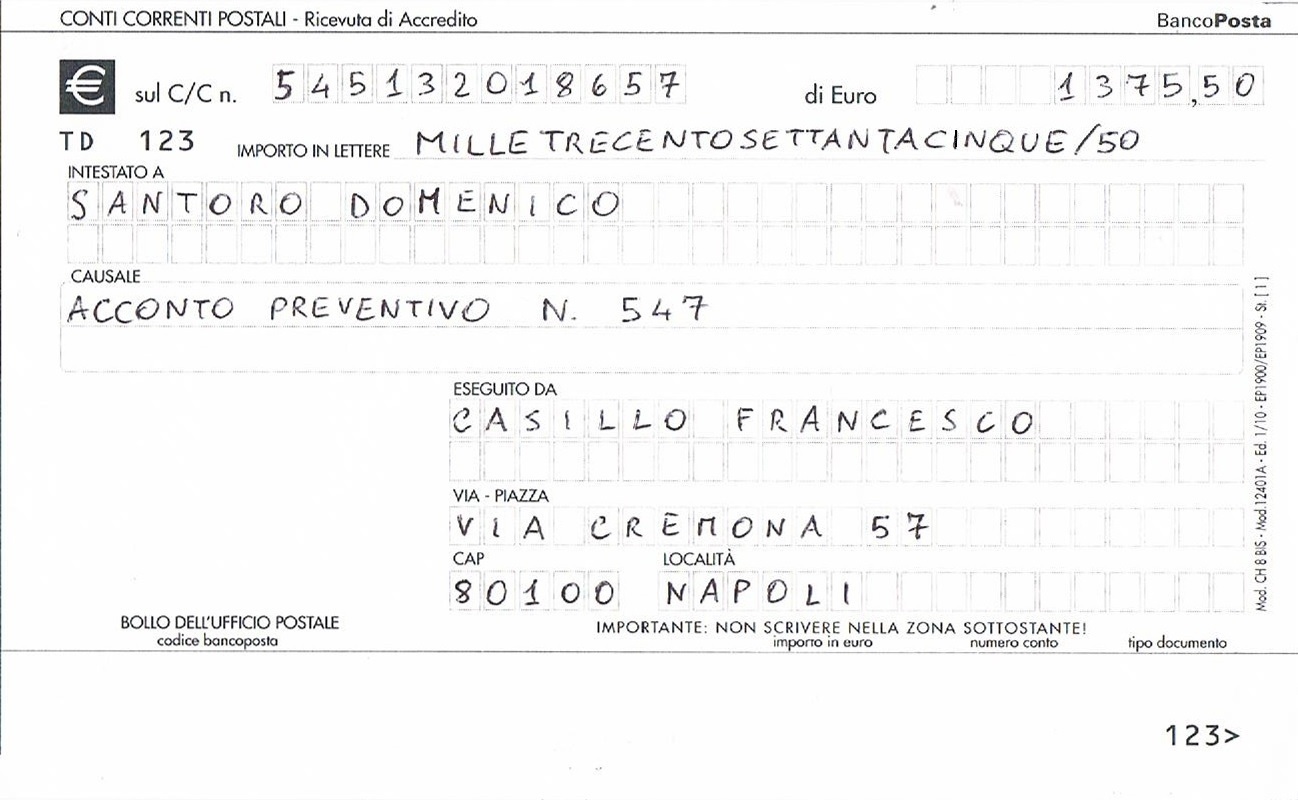 CONTI CORRENTI POSTALI - Ricevuta di Accredito BancoPosta
€ sul C/C n. 545132018657 di Euro 1375,50
TD 123 IMPORTO IN LETTERE MILLETRECENTOSETTANTACINQUE/50
INTESTATO A
SANTORO DOMENICO
CAUSALE
ACCONTO PREVENTIVO N. 547
ESEGUITO DA
CASILLO FRANCESCO
VIA - PIAZZA
VIA CREMONA 57
CAP LOCALITÀ
80100 NAPOLI
BOLLO DELL'UFFICIO POSTALE
codice bancoposta
IMPORTANTE: NON SCRIVERE NELLA ZONA SOTTOSTANTE!
importo in euro numero conto tipo documento
Mod. CH 8 BIS - Mod.12401A - Ed. 1/10 - EP1900/EP1909 - St. [1]
123>